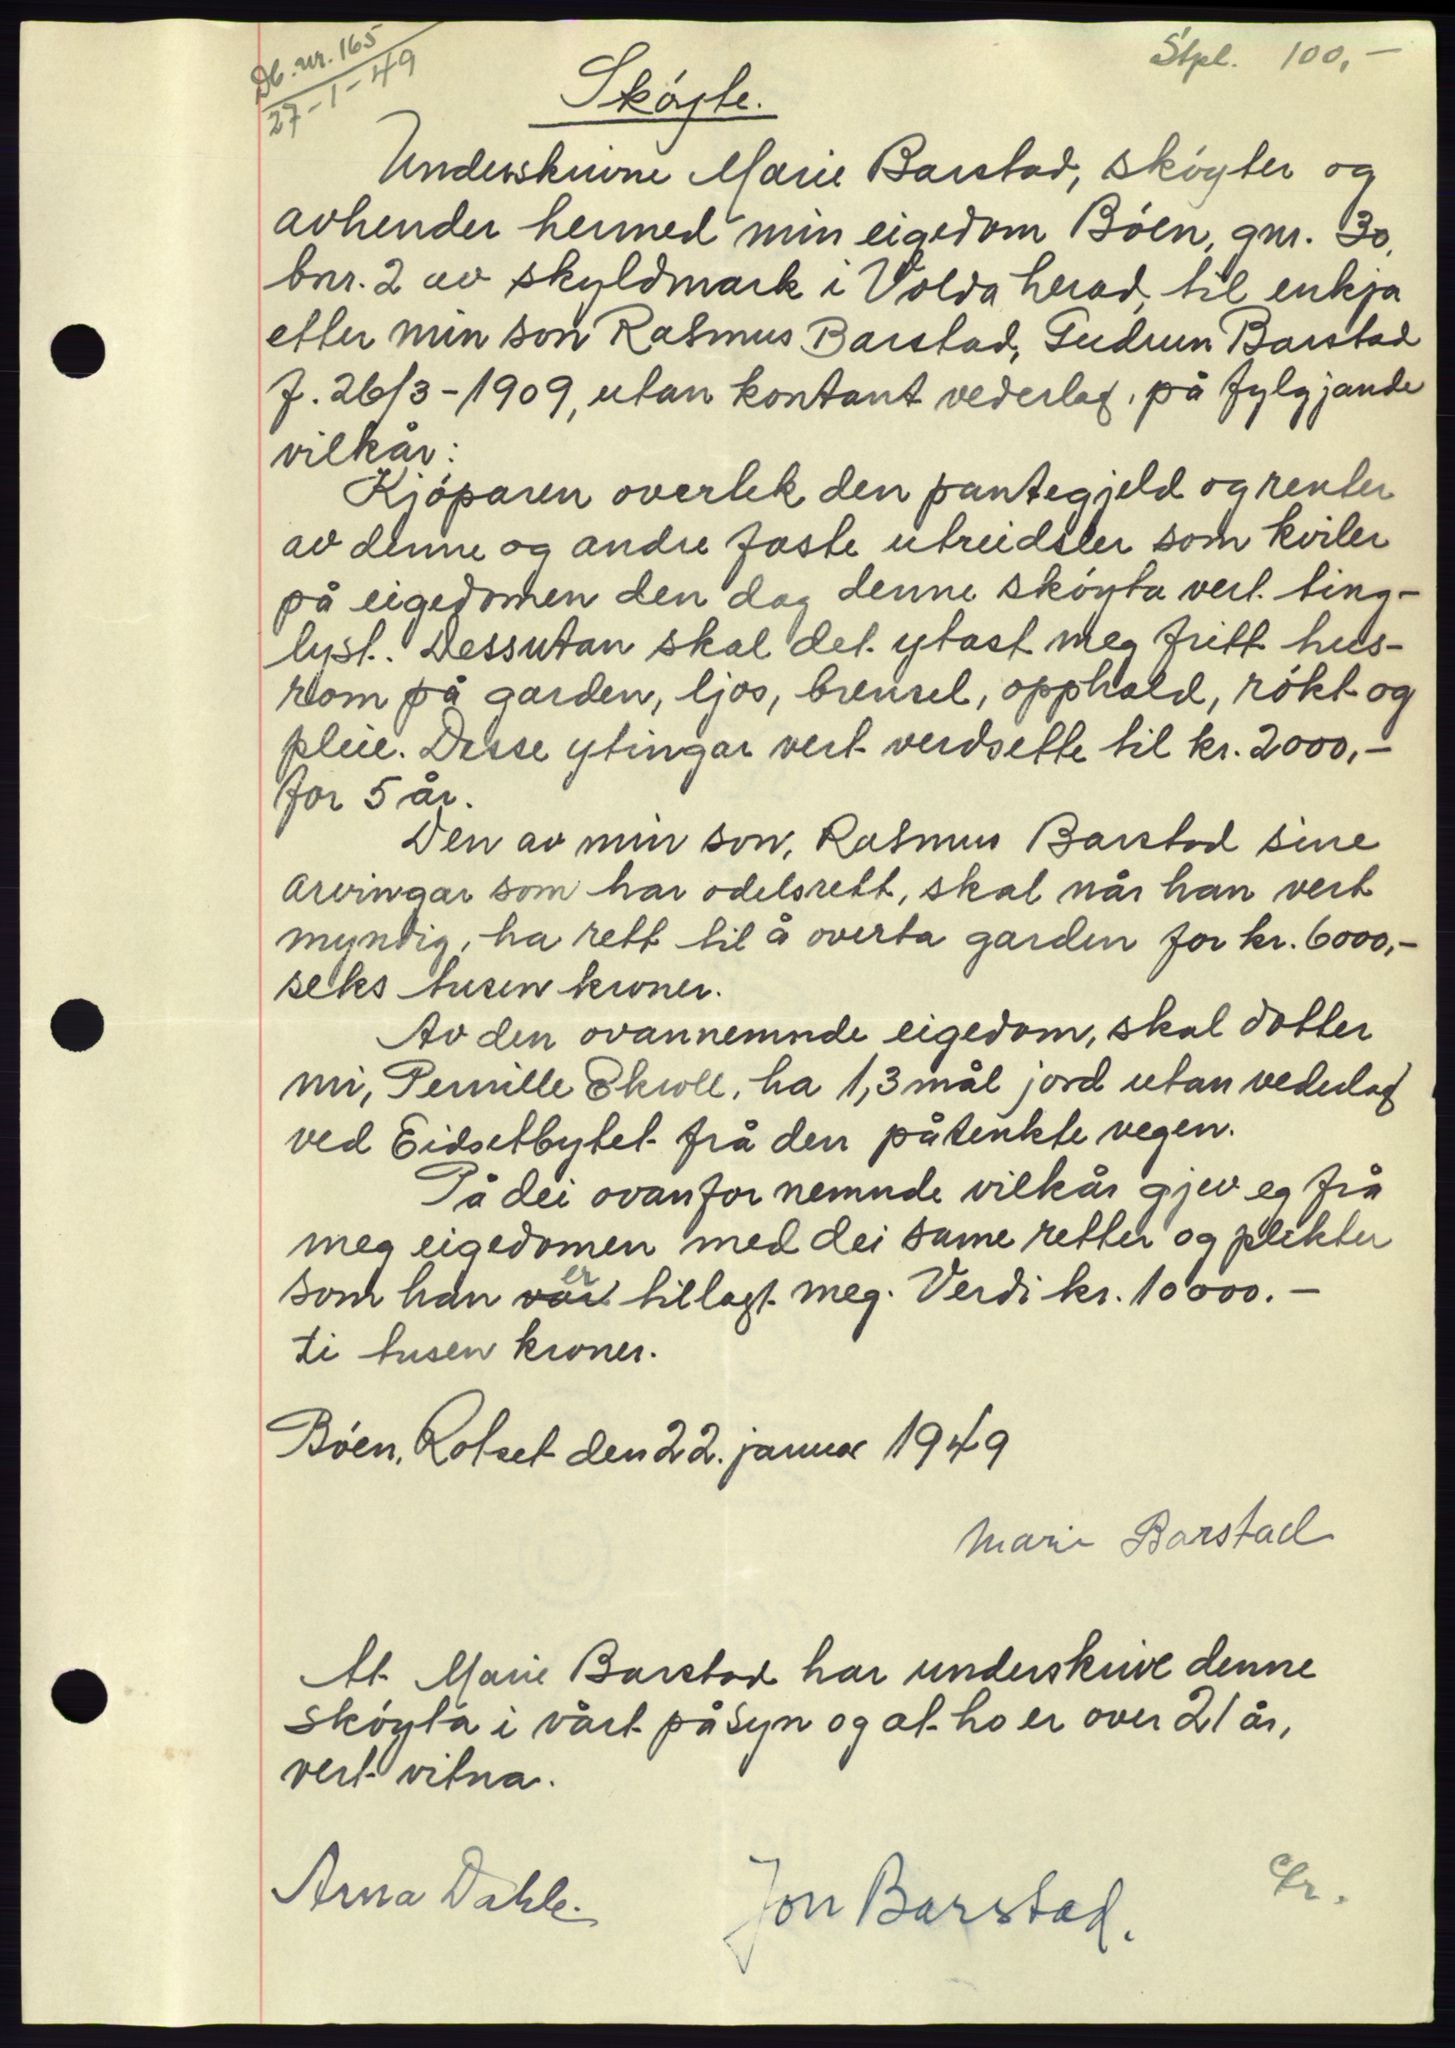 Db. nr. 165
27-1-49
Stpl. 100,-
Skóyte.
Underskrivne Marie Barstad, skóyter og
avhender hermed min eigedom Bóen, gnr. 30,
bnr. 2 av skyldmark i Volda herad, til enkja
etter min son Rasmus Barstad, Gudrun Barstad
f. 26/3-1909, utan kontant vederlag, på fylgjande
vilkår:
Kjóparen overtek den pantegjeld og renter
av denne og andre faste utreidsler som kviler
på eigedomen den dag denne skóyta vert ting-
lyst. Dessutan skal det ytast meg fritt hus-
rom på garden, ljos, brensel, opphald, rókt og
pleie. Desse ytingar vert verdsette til kr. 2000,-
for 5 år.
Den av min son, Rasmus Barstad sine
arvingar som har odelsrett, skal når han vert
myndig, ha rett til å overta garden for kr. 6000,-
seks tusen kroner.
Av den ovannemnde eigedom, skal dotter
mi, Pernille Ekroll, ha 1,3 mål jord utan vederlag
ved Eidsetbytet frå den påtenkte vegen.
På dei ovanfor nemnde vilkår gjev eg frå
meg eigedomen med dei same retter og plikter
som han var er tillagt meg. Verdi kr. 10000.-
ti tusen kroner.
Bóen, Rotset den 22. januar 1949
Marie Barstad
At Marie Barstad har underskrive denne
skóyta i vårt påsyn og at ho er over 21 år,
vert vitna.
Arna Dahle.
Jon Barstad.